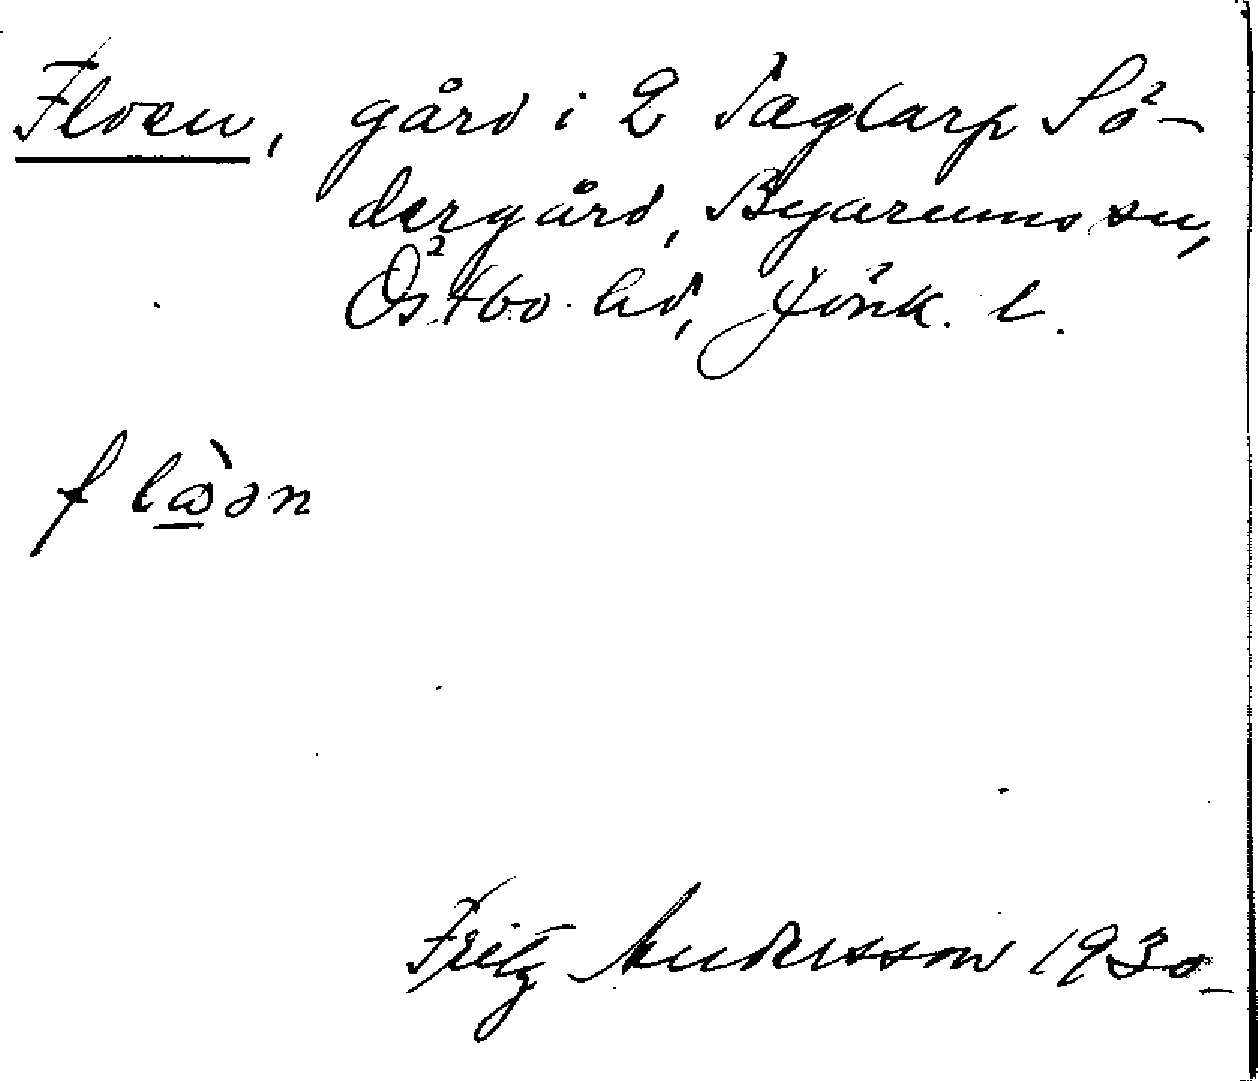 Floen, gård i 2 Taglarp Sö-
dergård, Byarums sn,
Östbo hd, Jönk. l.
flꞷ̀ən
Fritz Andersson 1930